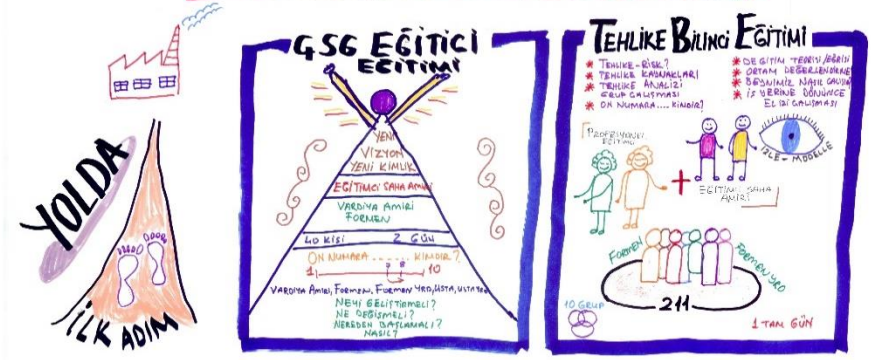 YOLDA
İLK ADIM
GSG EĞİTİCİ
EĞİTİMİ
YENİ
VİZYON
YENİ KİMLİK
EĞİTİMCİ SAHA AMİRİ
VARDİYA AMİRİ
FORMEN
40 KİŞİ 2 GÜN
ON NUMARA ........ KİMDİR?
1 10
VARDİYA AMİRİ, FORMEN, FORMEN YRD, USTA, USTA YRD
NEYİ GELİŞTİRMELİ?
NE DEĞİŞMELİ?
NEREDEN BAŞLAMALI?
NASIL?
TEHLİKE BİLİNCİ EĞİTİMİ
* TEHLİKE-RİSK?
* TEHLİKE KAYNAKLARI
* TEHLİKE ANALİZİ
GRUP ÇALIŞMASI
* ON NUMARA.... KİMDİR?
* DEĞİŞİM TEORİSİ/EĞRİSİ
* ORTAM DEĞERLENDİRME
* BEYNİMİZ NASIL ÇALIŞIR
* İŞ YERİNE DÖNÜNCE
ELİŞİ ÇALIŞMASI
PROFESYONEL
EĞİTİMCİ
+
EĞİTİMCİ SAHA
AMİRİ
İZLE - MODELLE
FORMEN
FORMEN YRD
211
10 GRUP
1 TAM GÜN